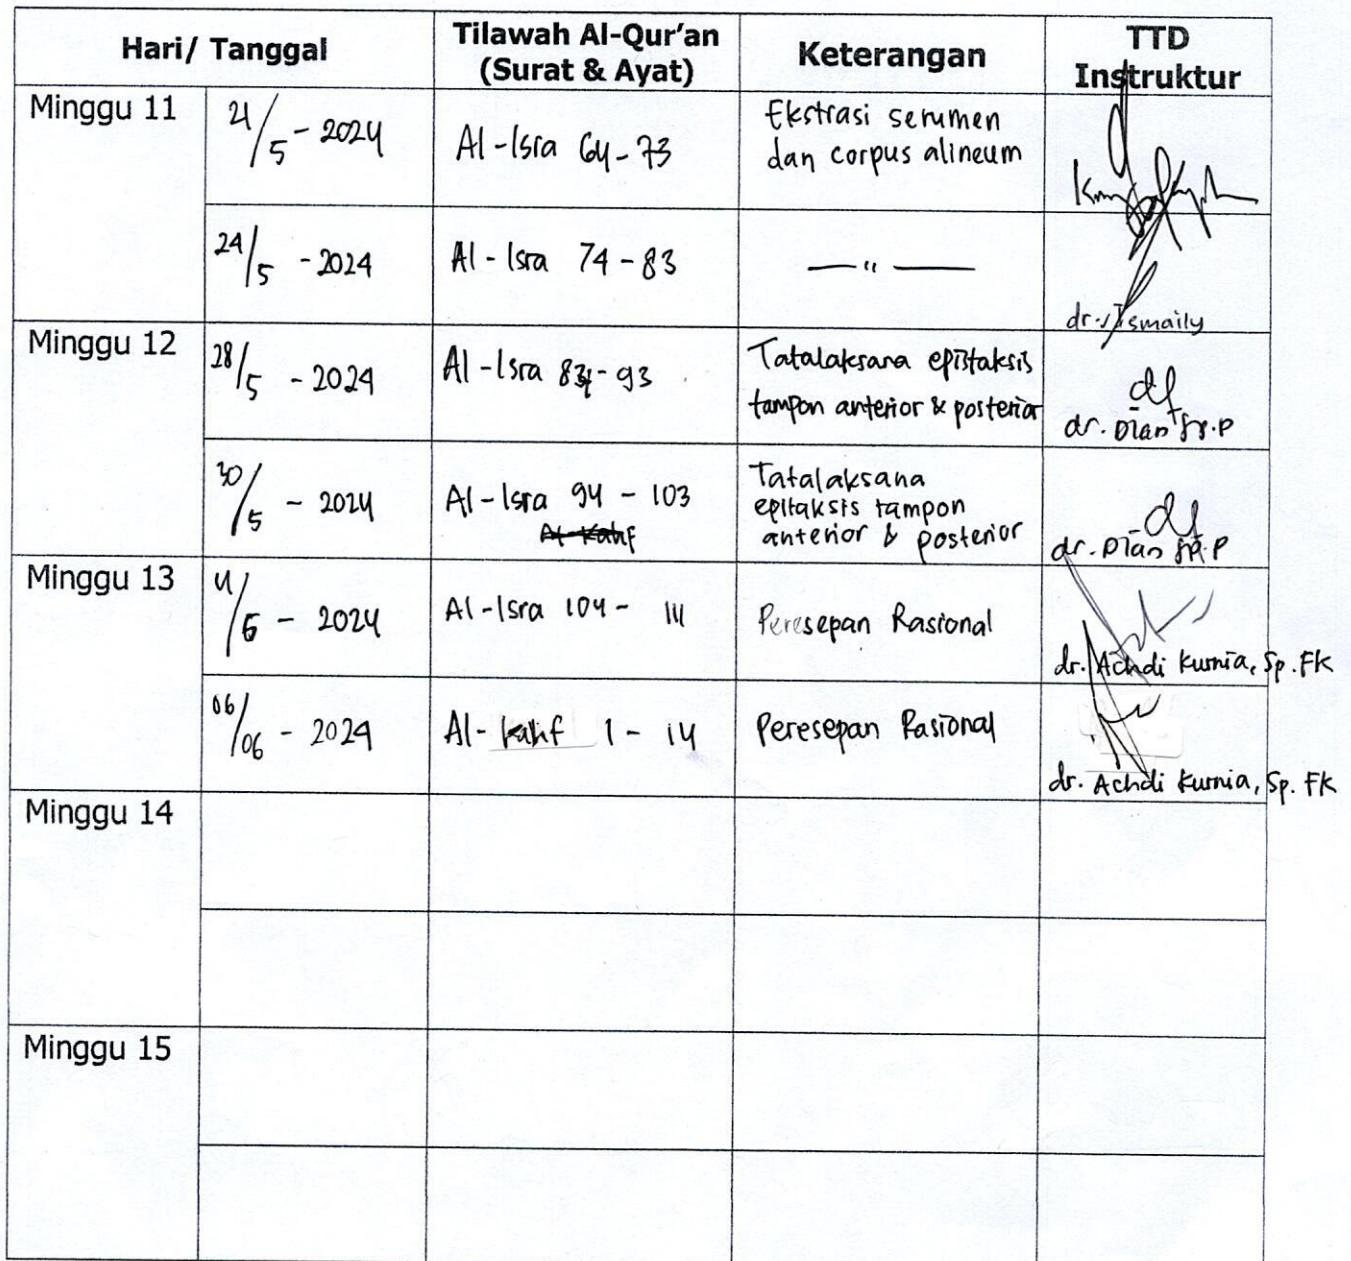 Hari/ Tanggal
Tilawah Al-Qur'an
(Surat & Ayat)
Keterangan
TTD
Instruktur
Minggu 11
21/5 - 2024
Al-Isra 64-73
Ekstrasi serumen
dan corpus alineum
24/5 - 2024
Al-Isra 74-83
—"—
dr. Ismaily
Minggu 12
28/5 - 2024
Al-Isra 84-93
Tatalaksana epistaksis
tampon anterior & posterior
dr. Dian Sp.P
30/5 - 2024
Al-Isra 94 - 103
Al-Kahf
Tatalaksana
epitaksis tampon
anterior & posterior
dr. Dian Sp.P
Minggu 13
4/6 - 2024
Al-Isra 104 - 111
Peresepan Rasional
dr. Achdi Kurnia, Sp.FK
06/06 - 2024
Al-Kahf 1 - 14
Peresepan Rasional
dr. Achdi Kurnia, Sp.FK
Minggu 14
Minggu 15